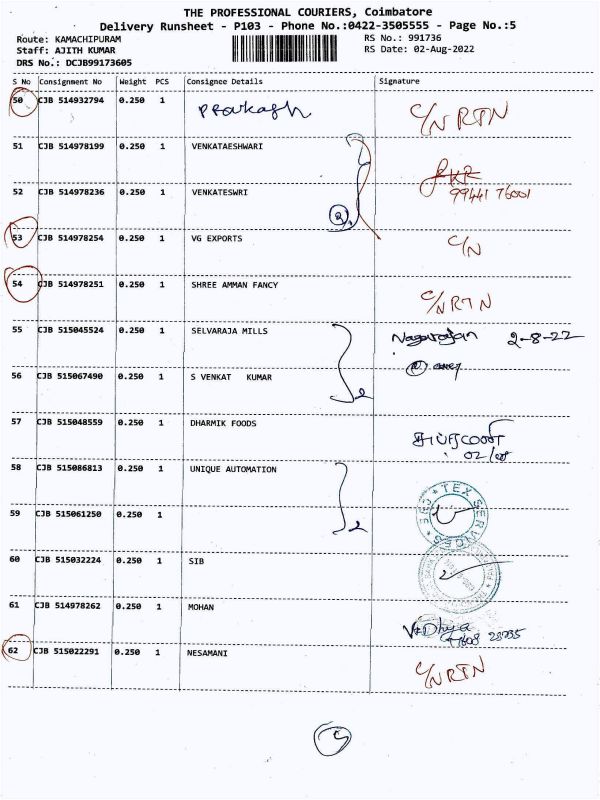 THE PROFESSIONAL COURIERS, Coimbatore
Delivery Runsheet - P103 - Phone No.:0422-3505555 - Page No.:5
Route: KAMACHIPURAM RS No.: 991736
Staff: AJITH KUMAR RS Date: 02-Aug-2022
DRS No.: DCJB99173605
S No Consignment No Weight PCS Consignee Details Signature
50 CJB 514932794 0.250 1 Prakash C/N RTN
51 CJB 514978199 0.250 1 VENKATAESHWARI
52 CJB 514978236 0.250 1 VENKATESWRI 99441 76001
53 CJB 514978254 0.250 1 VG EXPORTS C/N
54 CJB 514978251 0.250 1 SHREE AMMAN FANCY C/N RTN
55 CJB 515045524 0.250 1 SELVARAJA MILLS Nagarajan 2-8-22
56 CJB 515067490 0.250 1 S VENKAT KUMAR 2
57 CJB 515048559 0.250 1 DHARMIK FOODS
02/08
58 CJB 515086813 0.250 1 UNIQUE AUTOMATION
TEX SERVICES
59 CJB 515061250 0.250 1 2
60 CJB 515032224 0.250 1 SIB
61 CJB 514978262 0.250 1 MOHAN Vidhya
62 CJB 515022291 0.250 1 NESAMANI C/N RTN